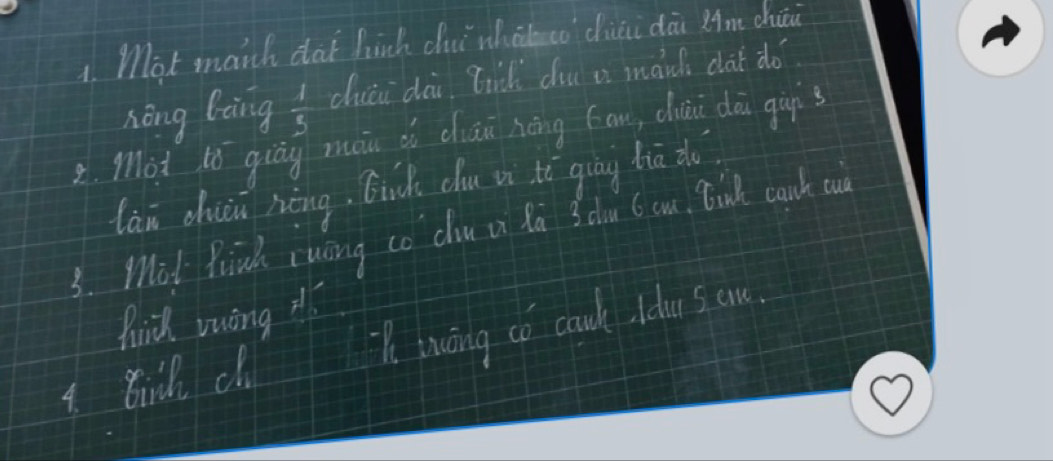 1. Một mảnh đất hình chữ nhật có chiều dài 24m chiều
rộng bằng 1/3 chiều dài. Tính chu vi mảnh đất đó.
2. Một tờ giấy màu có chiều rộng 6cm, chiều dài gấp 3
lần chiều rộng. Tính chu vi tờ giấy bìa đó.
3. Một hình vuông có chu vi là 3dm 6cm. Tính cạnh của
hình vuông
4. Tính ch vuông có cạnh 1dm 5cm.